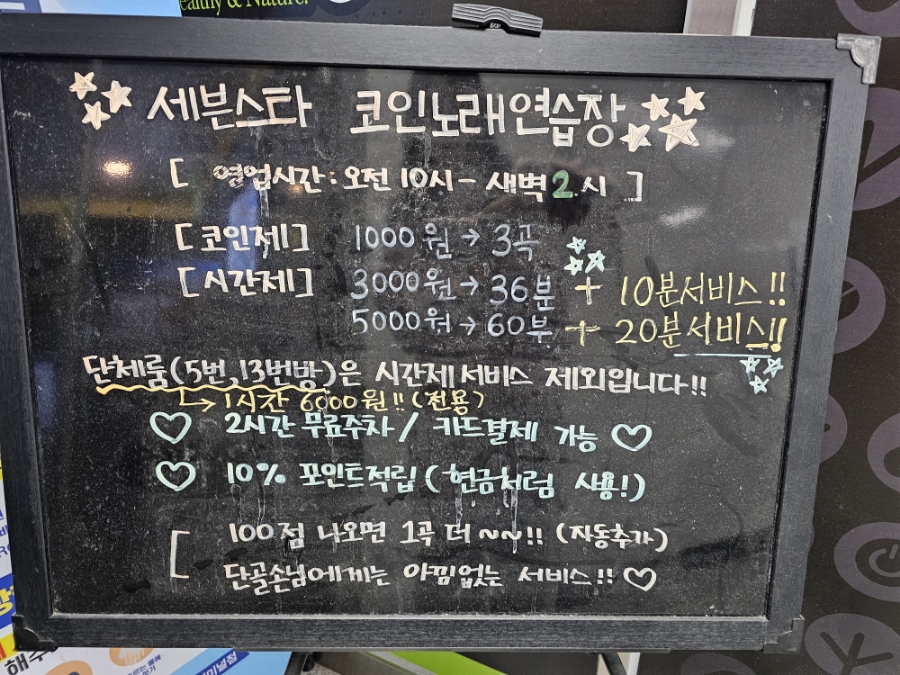 ealthy & Nature.
세븐스타 코인노래연습장
[ 영업시간 : 오전 10시 - 새벽 2시 ]
[코인제] 1000원 → 3곡
[시간제] 3000원 → 36분 + 10분서비스!!
5000원 → 60분 + 20분서비스!!
단체룸(5번,13번방)은 시간제서비스 제외입니다!!
→ 1시간 6000원!! (전용)
♡ 2시간 무료주차 / 카드결제 가능 ♡
♡ 10% 포인트적립 (현금처럼 사용!)
[ 100점 나오면 1곡 더 ~~!! (자동추가)
단골손님에게는 아낌없는 서비스!! ♡